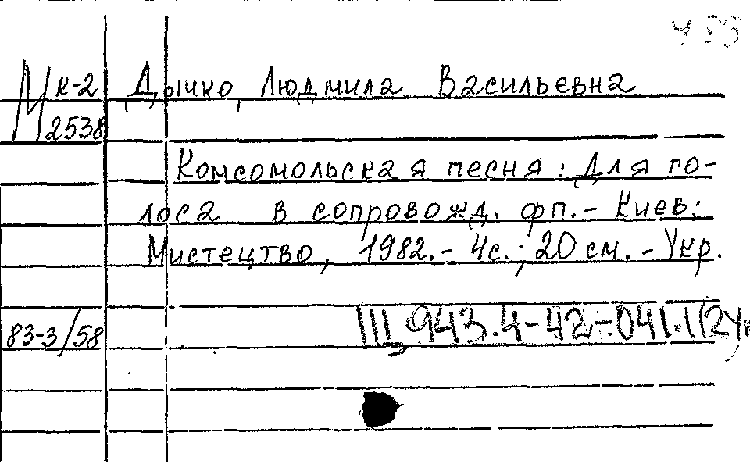 М к-2 Дычко, Людмила Васильевна
2538
Комсомольская песня: Для го-
лоса в сопровожд. фп. - Киев:
Мистецтво, 1982. - 4с.; 20 см. - Укр.
83-3/58 Щ943.4-42-041.1(2Ук